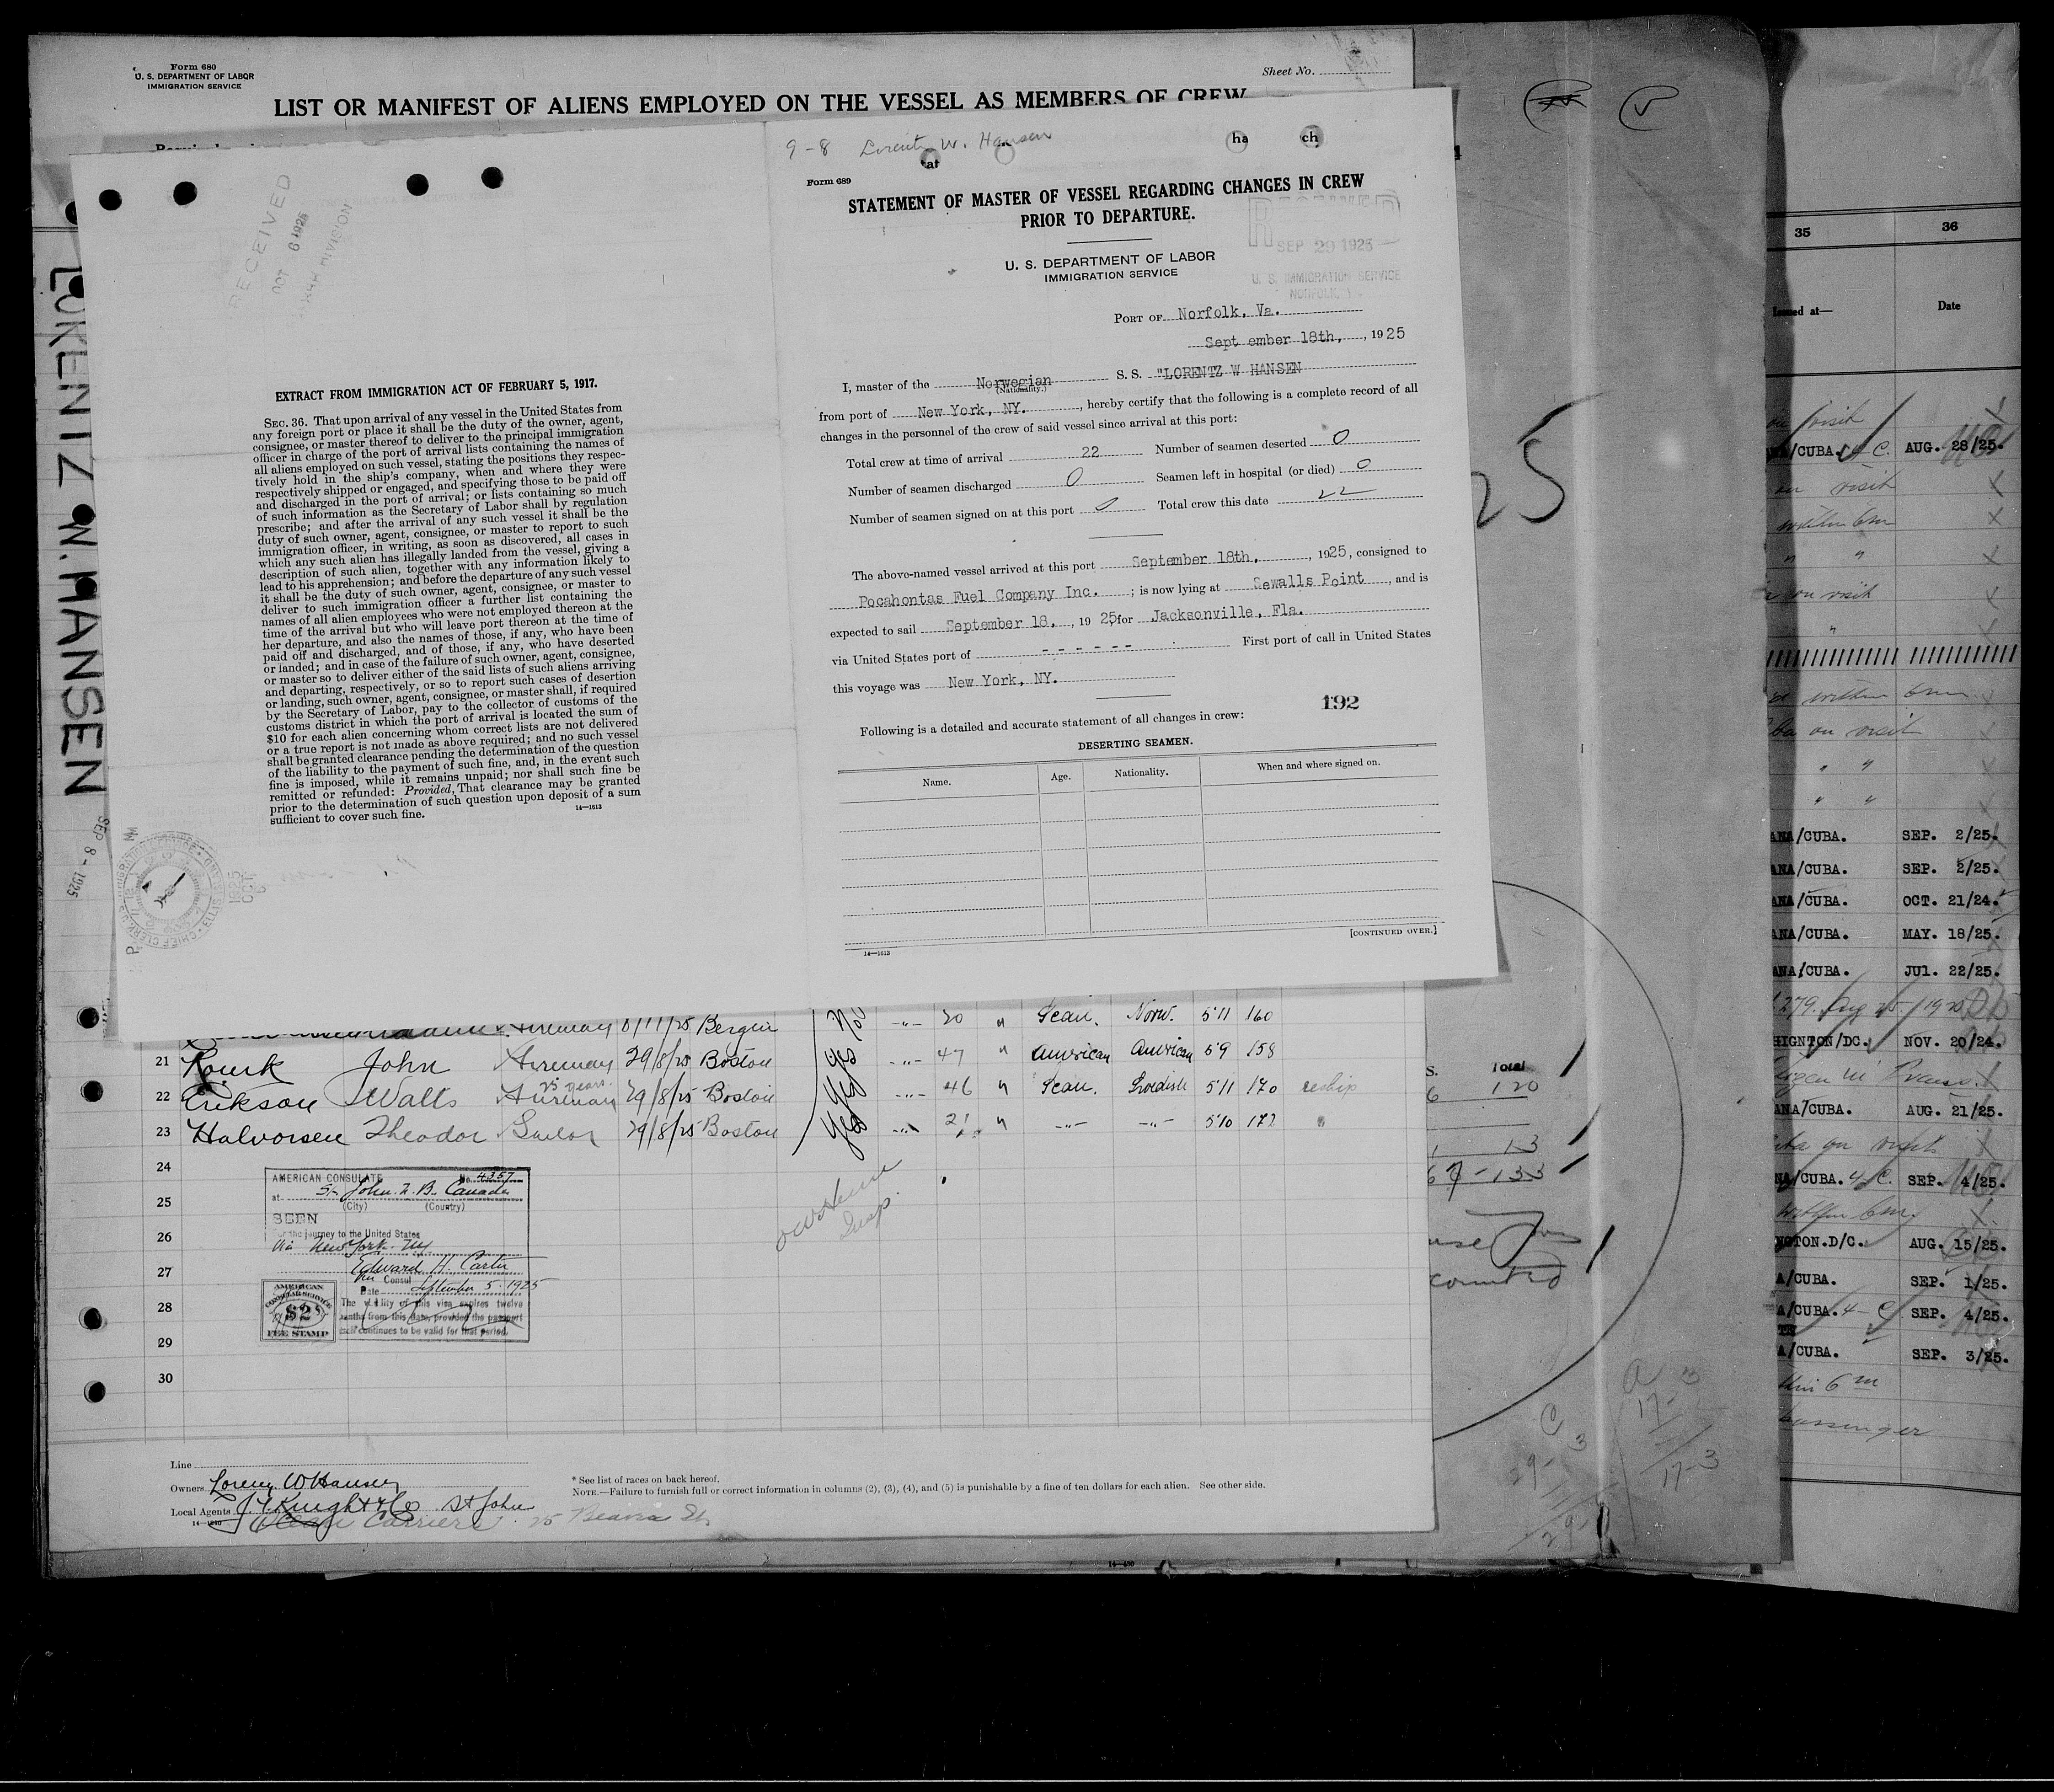 Form 680
U. S. DEPARTMENT OF LABOR
IMMIGRATION SERVICE
Sheet No.
LIST OR MANIFEST OF ALIENS EMPLOYED ON THE VESSEL AS MEMBERS OF CREW
LORENTZ W. HANSEN
SEP 8 - 1925
RECEIVED
OCT 6 1925
DIVISION
EXTRACT FROM IMMIGRATION ACT OF FEBRUARY 5, 1917.
SEC. 36. That upon arrival of any vessel in the United States from
any foreign port or place it shall be the duty of the owner, agent,
consignee, or master thereof to deliver to the principal immigration
officer in charge of the port of arrival lists containing the names of
all aliens employed on such vessel, stating the positions they respec-
tively hold in the ship's company, when and where they were
respectively shipped or engaged, and specifying those to be paid off
and discharged in the port of arrival; or lists containing so much
of such information as the Secretary of Labor shall by regulation
prescribe; and after the arrival of any such vessel it shall be the
duty of such owner, agent, consignee, or master to report to such
immigration officer, in writing, as soon as discovered, all cases in
which any such alien has illegally landed from the vessel, giving a
description of such alien, together with any information likely to
lead to his apprehension; and before the departure of any such vessel
it shall be the duty of such owner, agent, consignee, or master to
deliver to such immigration officer a further list containing the
names of all alien employees who were not employed thereon at the
time of the arrival but who will leave port thereon at the time of
her departure, and also the names of those, if any, who have been
paid off and discharged, and of those, if any, who have deserted
or landed; and in case of the failure of such owner, agent, consignee,
or master so to deliver either of the said lists of such aliens arriving
and departing, respectively, or so to report such cases of desertion
or landing, such owner, agent, consignee, or master shall, if required
by the Secretary of Labor, pay to the collector of customs of the
customs district in which the port of arrival is located the sum of
$10 for each alien concerning whom correct lists are not delivered
or a true report is not made as above required; and no such vessel
shall be granted clearance pending the determination of the question
of the liability to the payment of such fine, and, in the event such
fine is imposed, while it remains unpaid; nor shall such fine be
remitted or refunded: Provided, That clearance may be granted
prior to the determination of such question upon deposit of a sum
sufficient to cover such fine.
14—1613
9 - 8 Lorentz W. Hansen
Form 689
STATEMENT OF MASTER OF VESSEL REGARDING CHANGES IN CREW
PRIOR TO DEPARTURE.
U. S. DEPARTMENT OF LABOR
IMMIGRATION SERVICE
RECEIVED
SEP 29 1925
U. S. IMMIGRATION SERVICE
NORFOLK
PORT OF Norfolk, Va.
Sept ember 18th, , 1925
I, master of the Norwegian S. S. "LORENTZ W HANSEN
(Nationality.)
from port of New York, NY. , hereby certify that the following is a complete record of all
changes in the personnel of the crew of said vessel since arrival at this port:
Total crew at time of arrival 22 Number of seamen deserted 0
Number of seamen discharged 0 Seamen left in hospital (or died) 0
Number of seamen signed on at this port 0 Total crew this date 22
The above-named vessel arrived at this port September 18th, , 1925, consigned to
Pocahontas Fuel Company Inc. ; is now lying at Sewalls Point , and is
expected to sail September 18. , 19 25 for Jacksonville, Fla.
via United States port of - - - - - - First port of call in United States
this voyage was New York, NY.
192
Following is a detailed and accurate statement of all changes in crew:
DESERTING SEAMEN.
Name. Age. Nationality. When and where signed on.
[CONTINUED OVER.]
14—1613
Bergen No 30 " Scan. Norw. 5'11 160
21 Rourk John Fireman 29/8/25 Boston Yes -"- 47 " American American 5'9 158
22 Erikson Walls Fireman 29/8/25 Boston Yes -"- 46 " Scan. Swedish 5'11 170 reship
23 Halvorsen Theodor Sailor 29/8/25 Boston Yes -"- 21 " -"- -"- 5'10 172 "
24
25
26
27
28
29
30
AMERICAN CONSULATE No. 4357
at St. John. N. B. Canada
(City) (Country)
SEEN
For the journey to the United States
Via New York. NY
Edward H. Carter
Vice Consul
Date September 5. 1925
The validity of this visa expires twelve
months from this date, provided the passport
continues to be valid for that period.
AMERICAN
CONSULAR SERVICE
$2
FEE STAMP
Line
Owners Lorenz W Hansen
Local Agents J. T. Knight & Co St John
Ocean Carriers 25 Beaver St.
* See list of races on back hereof.
NOTE.—Failure to furnish full or correct information in columns (2), (3), (4), and (5) is punishable by a fine of ten dollars for each alien. See other side.
25
Total
120
13
133
counted
35 36
Issued at— Date
on visit
/CUBA. 4 C. AUG. 28/25.
on visit
within 6m
" "
on visit
"
within 6m
on visit
" "
" "
ANA/CUBA. SEP. 2/25.
ANA/CUBA. SEP. 2/25.
ANA/CUBA. OCT. 21/24.
ANA/CUBA. MAY. 18/25.
ANA/CUBA. JUL. 22/25.
279. Aug 25. 1925
HIGNTON/DC. NOV. 20/24.
ANA/CUBA. AUG. 21/25.
on visit
NA/CUBA. 4 C. SEP. 4/25.
within 6m.
NGTON.D/C. AUG. 15/25.
A/CUBA. SEP. 1/25.
A/CUBA. 4 - C SEP. 4/25.
A/CUBA. SEP. 3/25.
6 m
passenger
A 3
17-3
17-3
C 3
29-